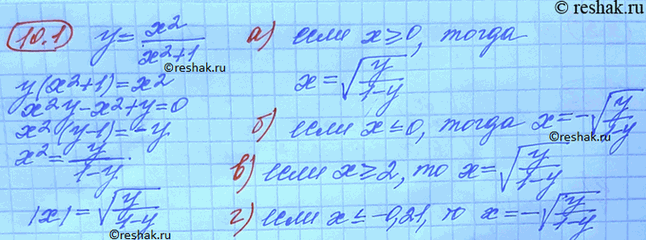 reshak.ru
10.1 y = x²/(x²+1)
©reshak.ru
y(x²+1)=x²
x²y-x²+y=0
x²(y-1)=-y
x²=y/(1-y)
|x|=√(y/(1-y))
а) если x≥0, тогда
x=√(y/(1-y))
б) если x≤0, тогда x=-√(y/(1-y))
в) если x≥2, то x=√(y/(1-y))
г) если x≤-0,21, то x=-√(y/(1-y))
©reshak.ru